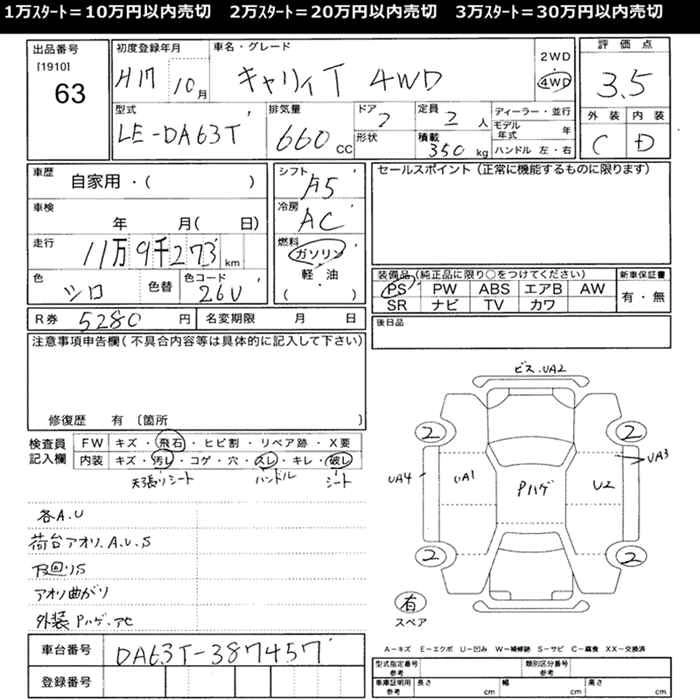 1万スタート＝10万円以内売切　2万スタート＝20万円以内売切　3万スタート＝30万円以内売切
出品番号
[1910]
63
初度登録年月
H17 10月
車名・グレード
キャリィT 4WD
2WD
4WD
評価点
3.5
型式
LE-DA63T
排気量
660 CC
ドア
2
形状
定員
2 人
積載
350 kg
ディーラー・並行
モデル年式 年
ハンドル 左・右
外装 内装
C D
車歴
自家用・( )
シフト
F5
セールスポイント（正常に機能するものに限ります）
車検
年 月( 日)
冷房
AC
走行
11万9千273km
燃料
ガソリン
軽・油
( )
色
シロ
色替
色コード
26U
装備品(純正品に限り○をつけてください)
PS PW ABS エアB AW
SR ナビ TV カワ
新車保証書
有・無
R券 5280 円
名変期限 月 日
後日品
注意事項申告欄(不具合内容等は具体的に記入して下さい)
修復歴 有〔箇所
検査員記入欄
FW キズ・飛石・ヒビ割・リペア跡・X要
内装 キズ・汚レ・コゲ・穴・スレ・キレ・破レ
天張りシート ハンドル シート
各A.U
荷台アオリ.A.U.S
下回りS
アオリ曲がり
外装Pハゲ.アセ
ビス.UA2
2 2
UA4 UA1 Pハゲ U2 UA3
2 2
有
スペア
A－キズ E－エクボ U－凹み W－補修跡 S－サビ C－腐食 XX－交換済
車台番号 DA63T-387457
登録番号
型式指定番号
参考
類別区分番号
参考
車庫証明用
参考
長さ cm 幅 cm 高さ cm